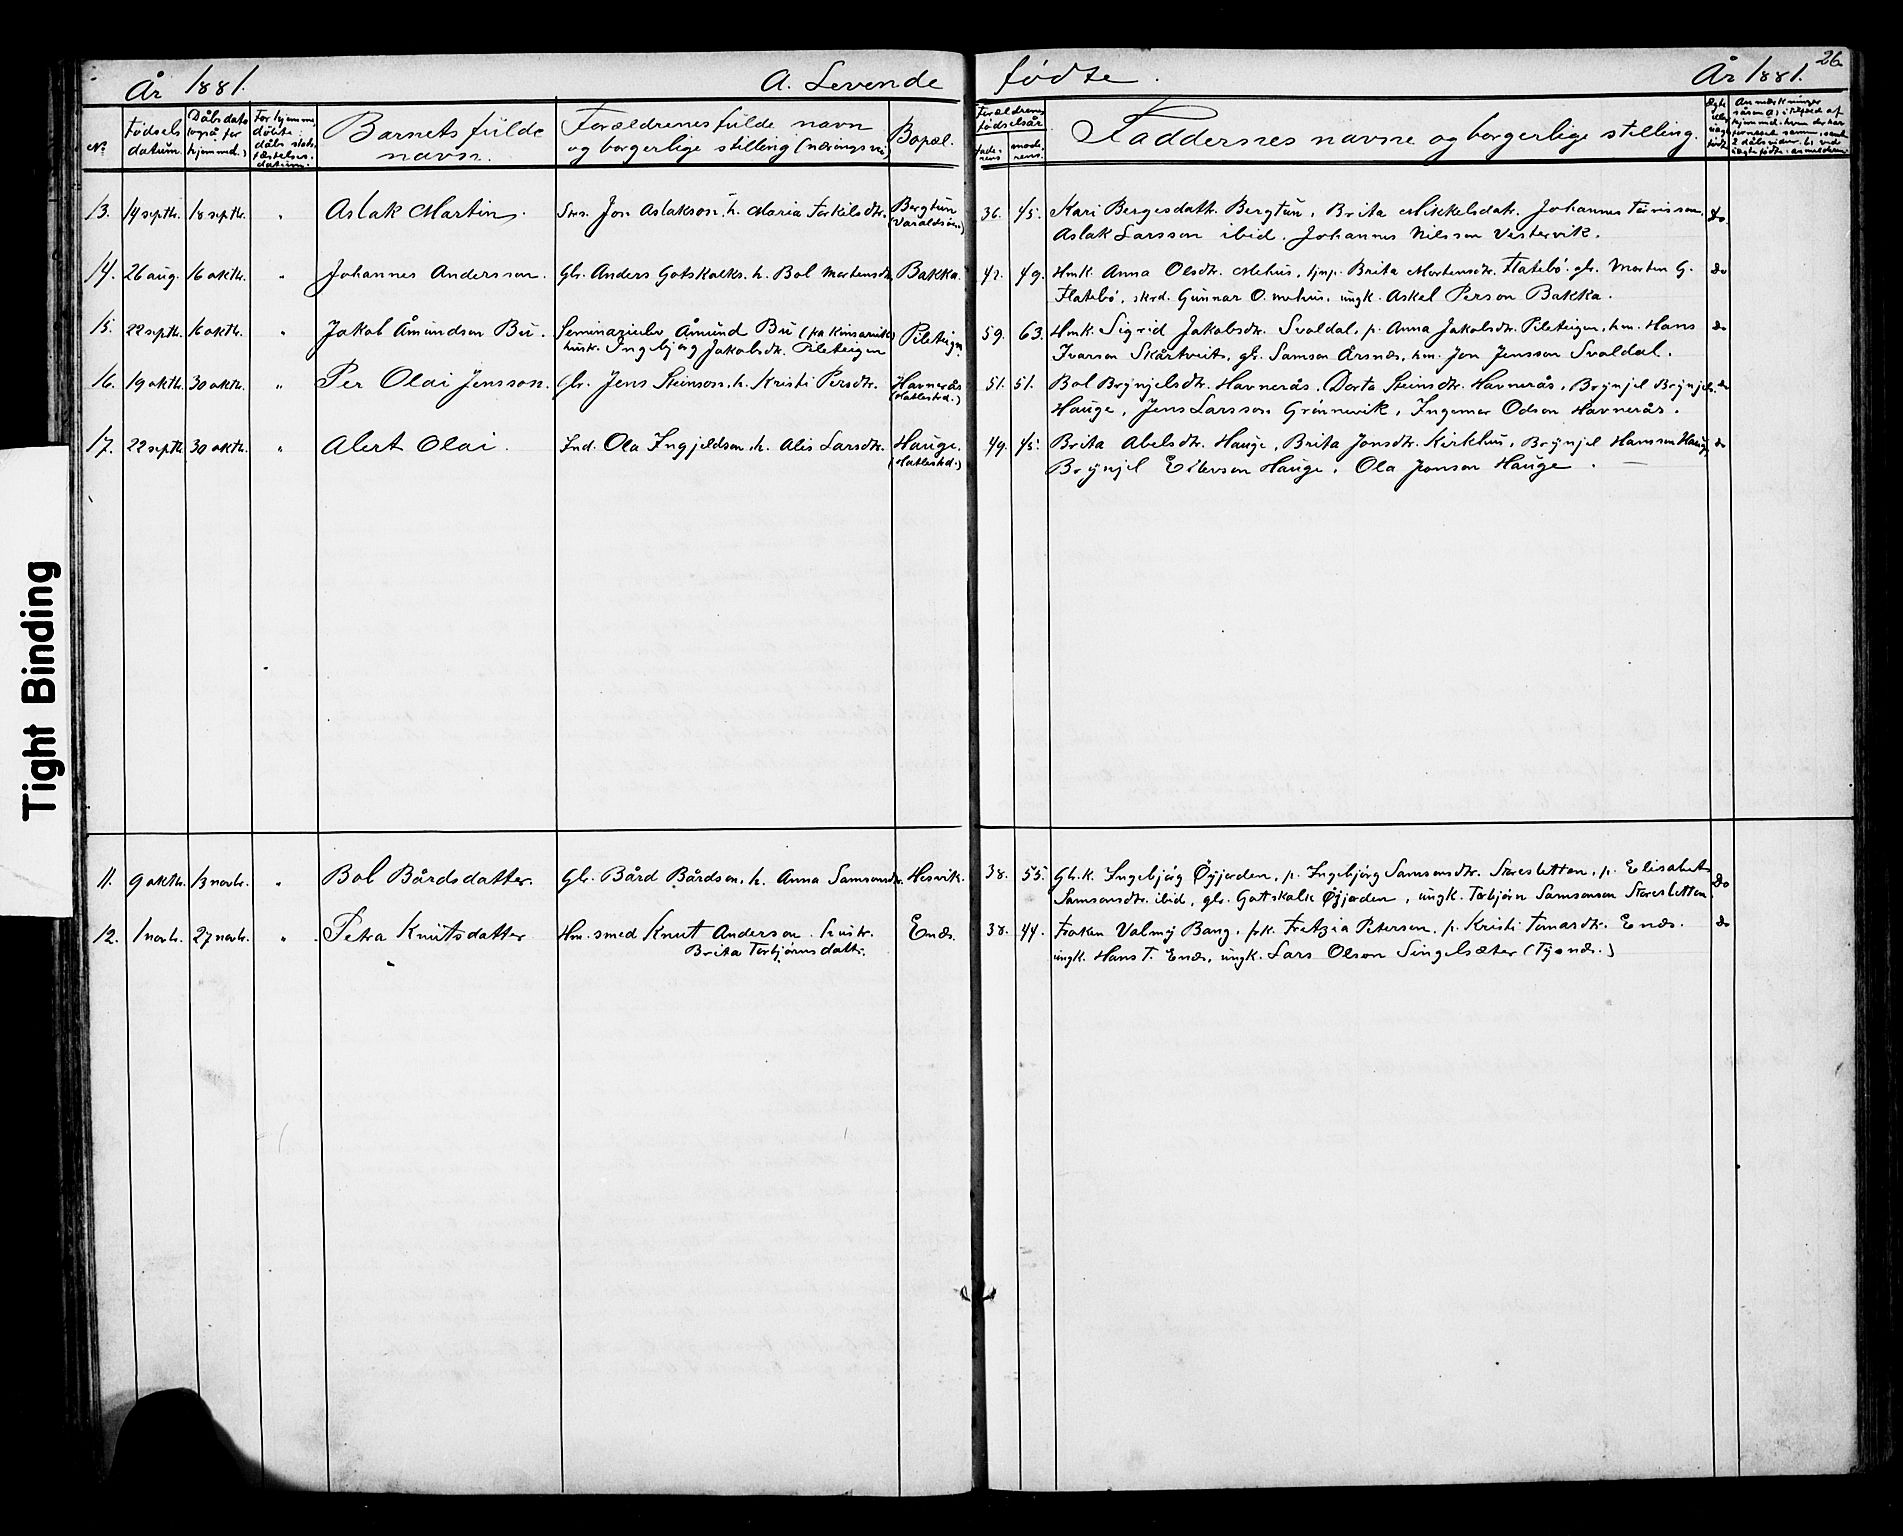 År 1881. A. Levende fødte. År 1881. 26
No.
Fødsels datum.
Dåbs dato (også for hjemmd.)
For hjemme døbte: dåbs stadfæstelses-datum.
Barnets fulde navn.
Forældrenes fulde navn og borgerlige stilling (næringsvei)
Bopæl.
Forældrenes fødselsår faderens moderens
Faddernes navne og borgerlige stilling.
Ægte eller uægte født
13. 14 septbr. 18 septbr. " Aslak Martin. Sms. Jon Aslakson, h. Maria Torkilsdtr. Bergtun (Varaldsøen) 36. 45. Kari Bergesdattr. Bergtun, Brita Mikkelsdatr. Johannes Tørrisson, Do
Aslak Larsson ibid. Johannes Nilsson Vestervik.
14. 26 aug. 16 oktbr. " Johannes Andersson. Gbr. Anders Gotskalks. h. Bol Mortensdtr. Bakka. 42. 49. Hmk. Anna Olsdtr. Mehus, tjnp. Brita Mortensdtr. Flatebö. gbr. Morten G. Do
Flatebö, skrd. Gunnar O. mehus, ungk. Askel Person Bakka.
15. 22 septbr. 16 oktbr. " Jakob Åmundson Bu. Seminarielev Åmund Bu (fra Kinsarvik) Pileteigen. 59. 63. Hmk. Sigrid Jakobsdtr. Svoldal, p. Anna Jakobsdtr. Pileteigen, hm. Hans Do
husk. Ingebjørg Jakobsdtr. Pileteigen Ivarson Skårtveit, gbr. Samson Årsnes, hm. Jon Jensson Svoldal.
16. 19 oktbr. 30 oktbr. " Per Olai Jensson. Gbr. Jens Steinson, h. Kristi Persdtr. Havnerås (Hatlestrd.) 51. 51. Bol Brynjelsdtr. Havnerås, Dorta Steinsdtr. Havnerås, Brynjel Brynjels. Do
Hauge, Jens Larsson Grönnevik, Ingemar Odson Havnerås.
17. 22 septbr. 30 oktbr. " Alert Olai. Ind. Ola Ingjeldson, h. Alis Larsdtr. Hauge. (Hatlestrd.) 49. 45. Brita Abelsdtr. Hauge, Brita Jonsdtr. Kirkhus, Brynjel Hansson Hauge, Do
Brynjel Eilevson Hauge, Ola Jonson Hauge.
11. 9 oktbr. 13 novbr. " Bol Bårdsdatter. Gbr. Bård Bårdson, h. Anna Samsonsdtr. Hesvik. 38. 55. Gb.k. Ingebjörg Øyjorden, p. Ingebjörg Samsonsdtr. Storesletten, p. Elisabet Do
Samsonsdtr. ibid, gbr. Gottskalk Øyjorden, ungk. Torbjörn Samsonson Storesletten
12. 1 novbr. 27 novbr. " Petra Knutsdatter. Hm. smed Knut Anderson. hustr. Enes. 38. 44. Frøken Valmej Bang, frk. Fretzia Peterson, p. Kristi Tomasdtr. Enes. Do
Brita Torbjørnsdattr. ungk. Hans T. Enes, ungk. Lars Olson Singelsæter (Tysnes.)
Tight Binding